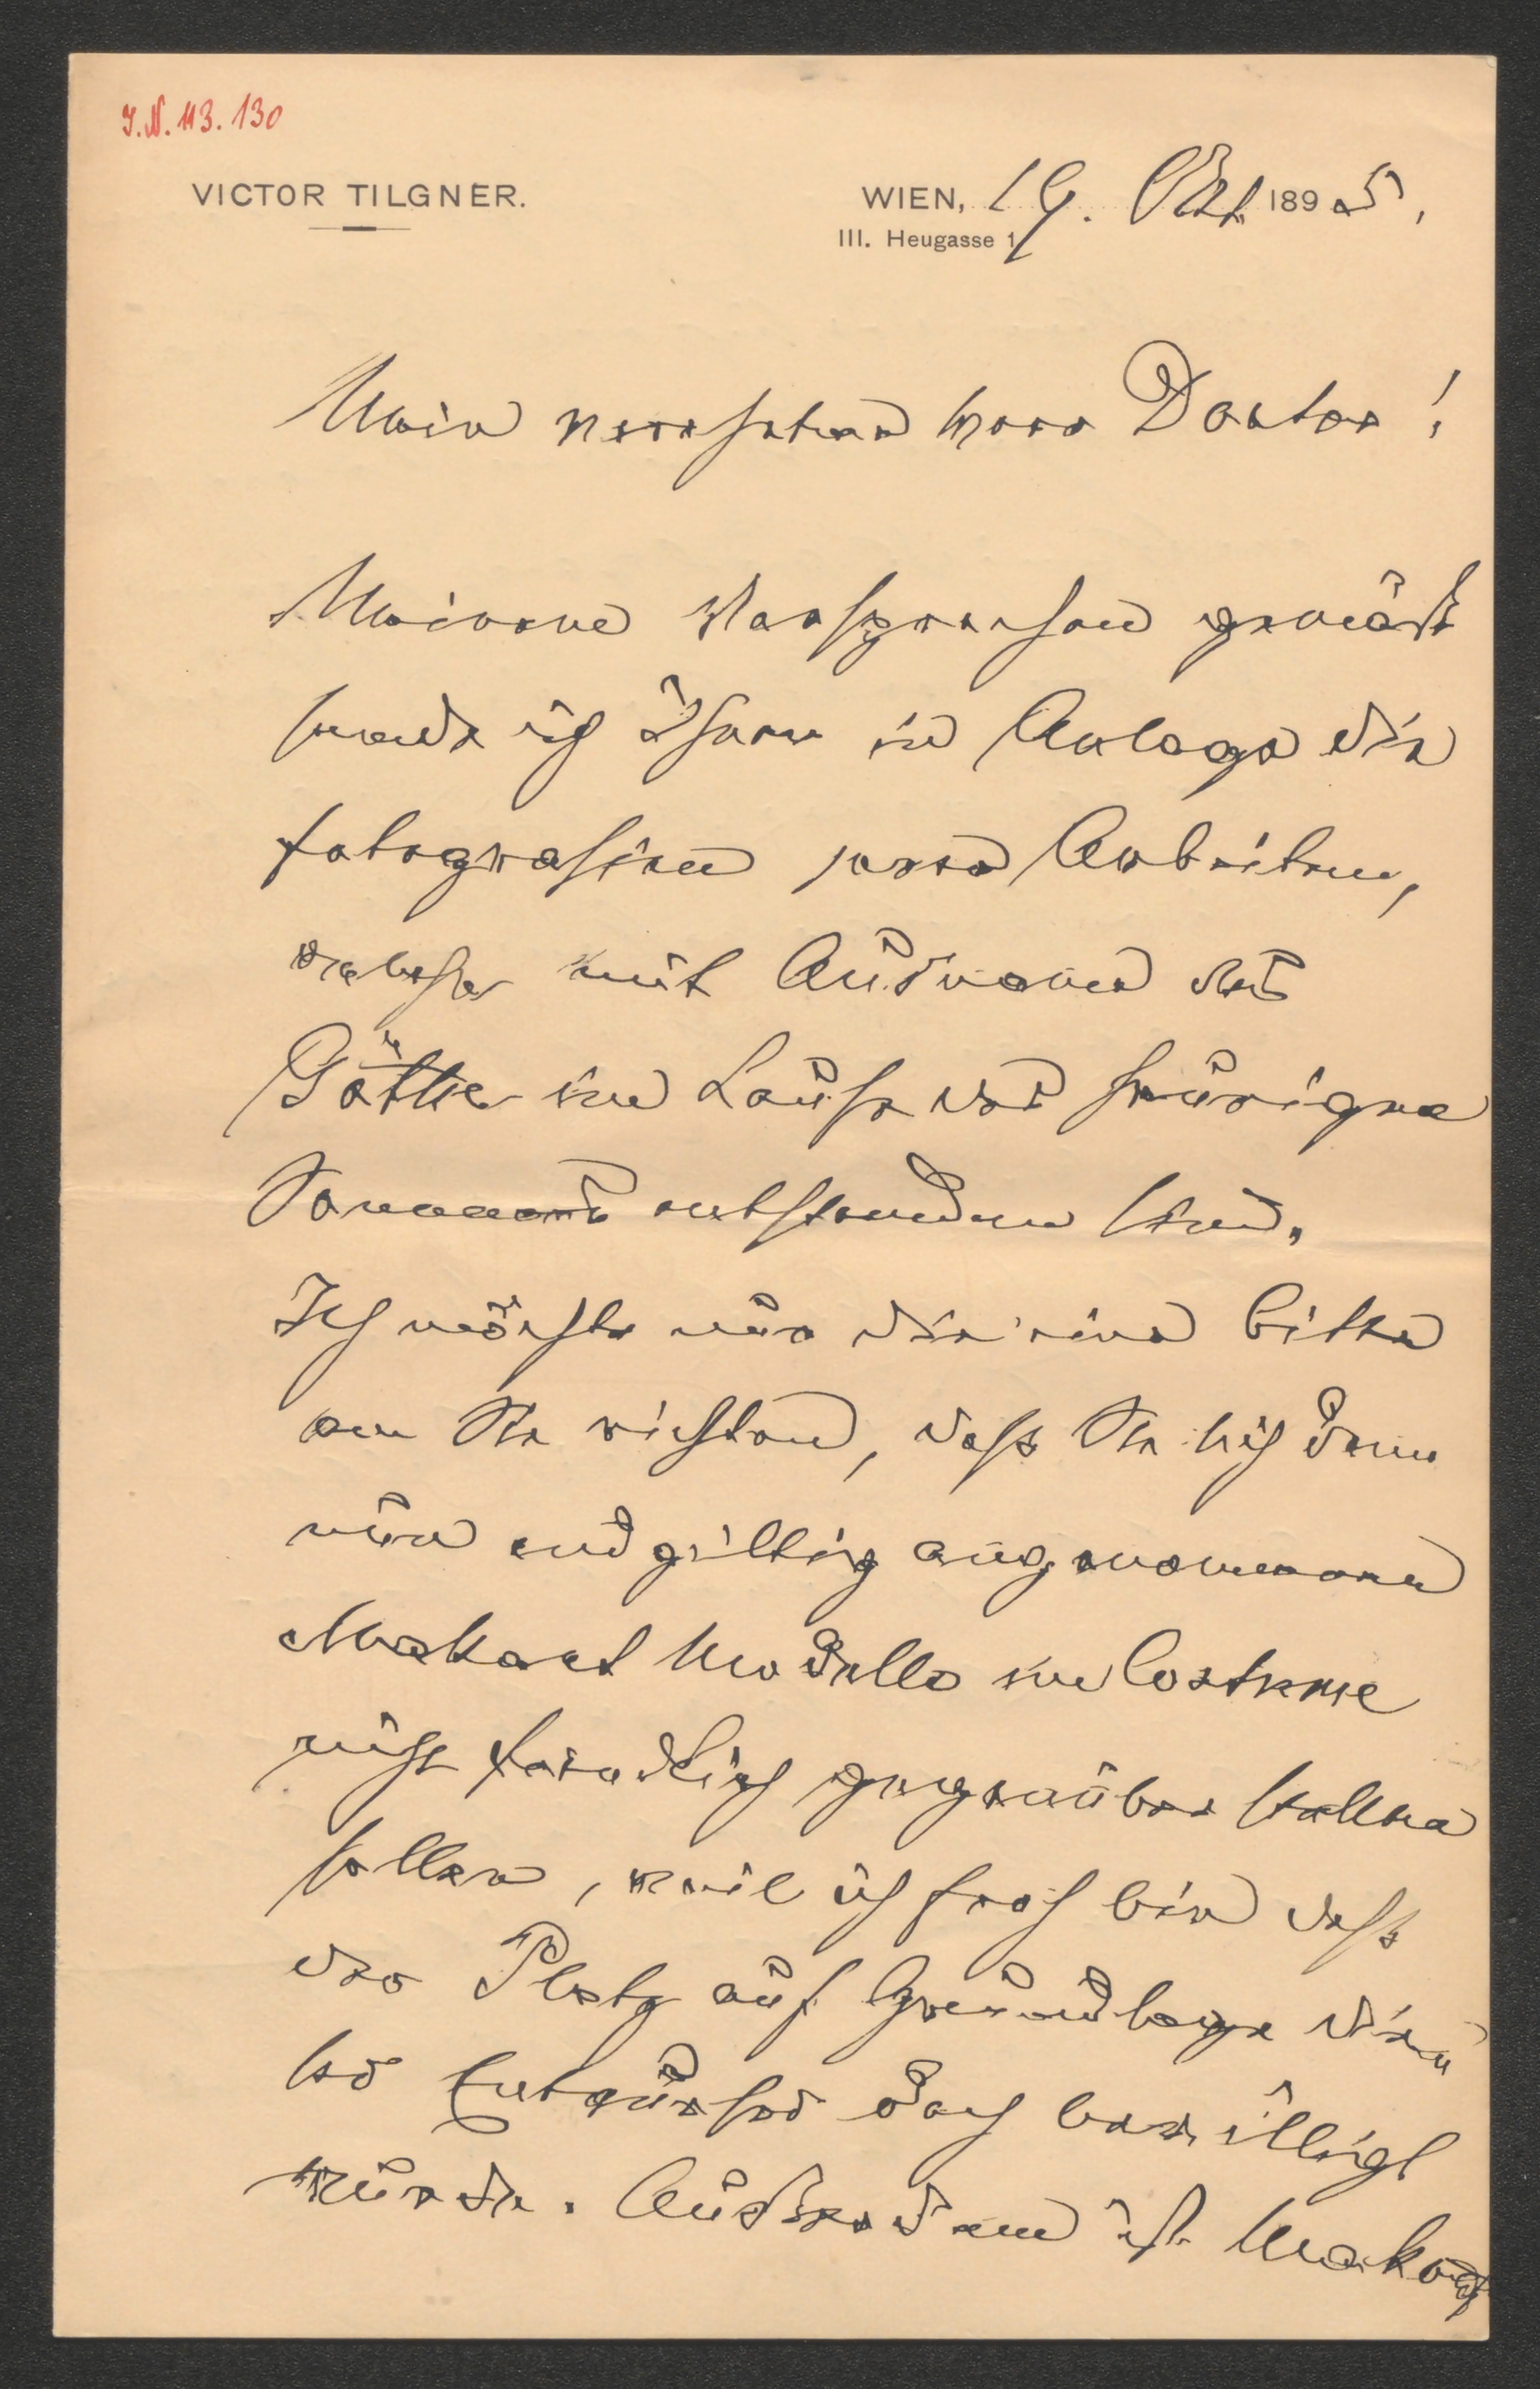 I.N. 113.130
VICTOR TILGNER.
WIEN, 19. Okt. 1895.
III. Heugasse 1
Mein verehrter Herr Doctor!
Meinem Versprechen gemäß
sende ich Ihnen in Anlage die
Fotografien jener Arbeiten,
welche mit Ausname des
Göthe im Laufe des heurigen
Sommers entstanden sind.
Ich möchte nur die eine Bitte
an Sie richten, dass Sie sich dem
nun endgiltig angenommenen
Makart Modelle im Costume
nicht feindlich gegenüber stellen
sollen, weil ich froh bin dass
der Platz auf Grundlage die
ses Entwurfes doch bewilligt
wurde. Außerdem ist Makart